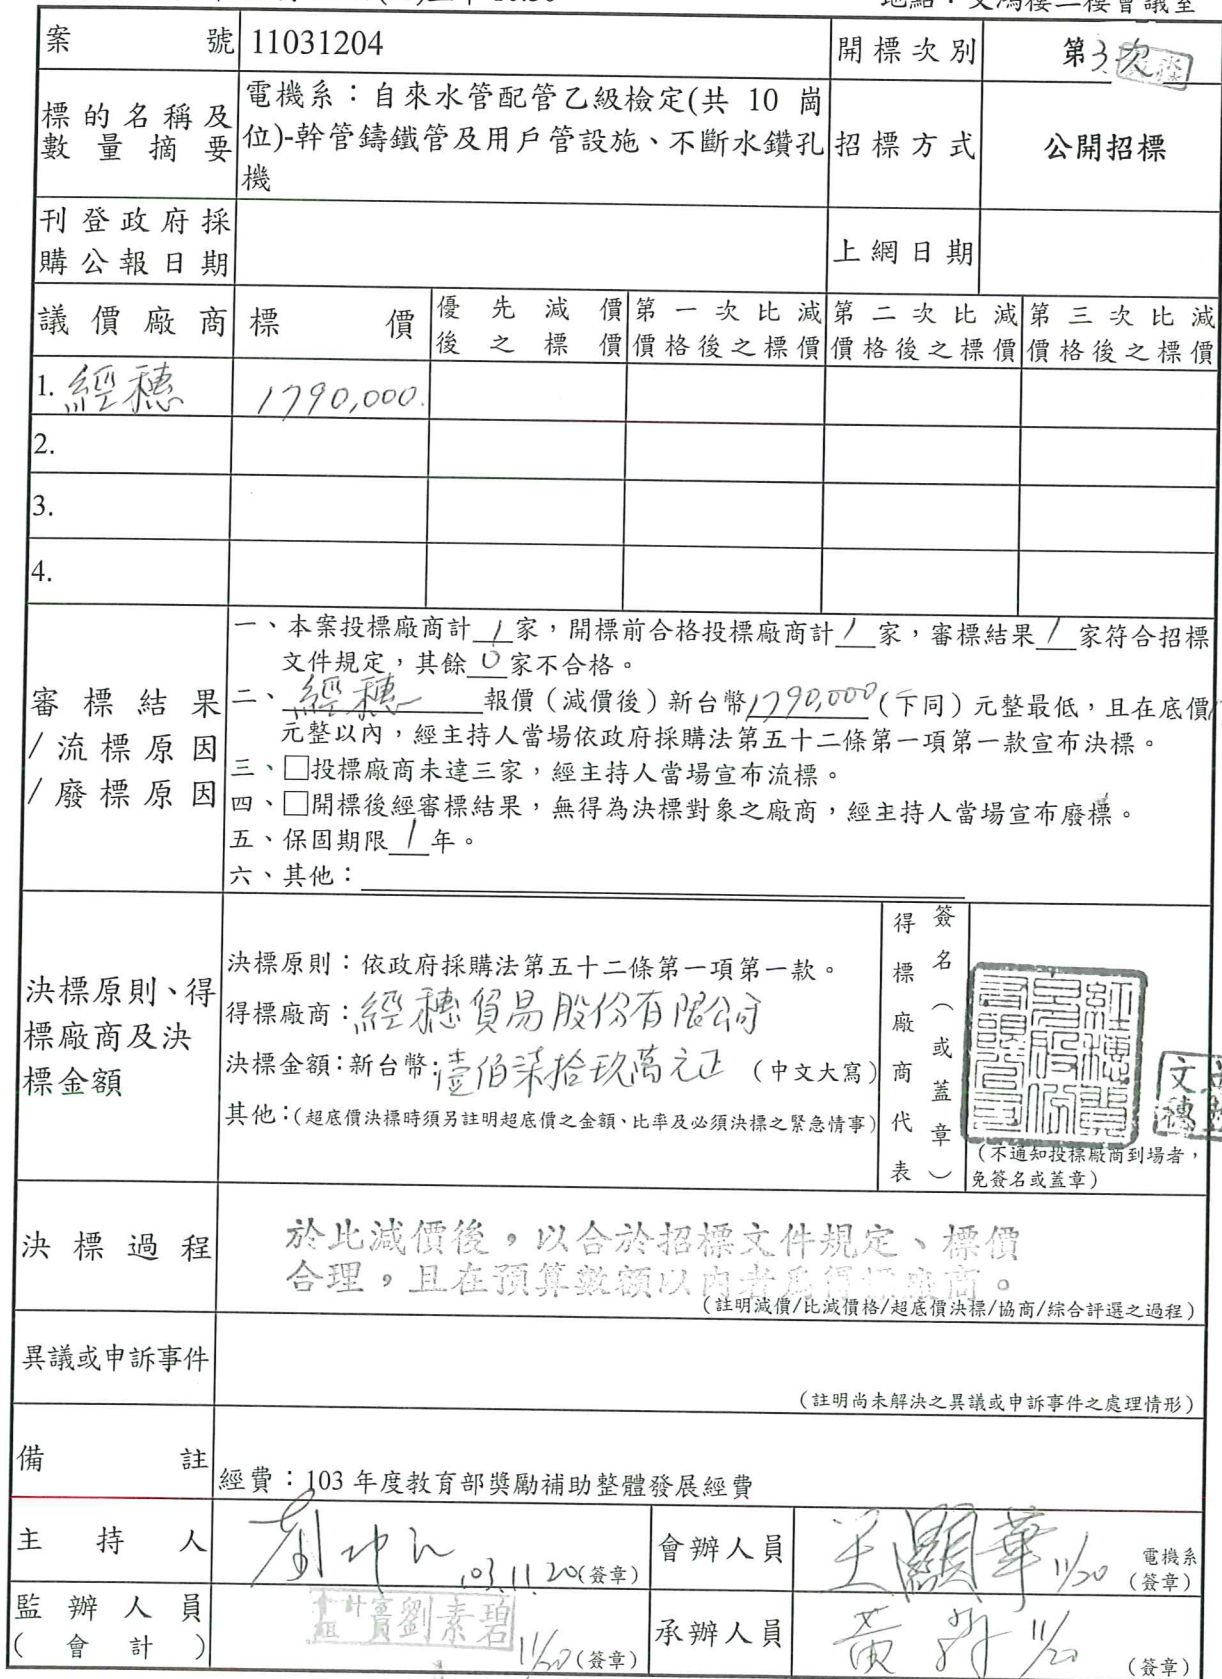 地點：文鴻樓二樓會議室
案號 11031204 開標次別 第3次
標的名稱及數量摘要 電機系：自來水管配管乙級檢定(共 10 崗
位)-幹管鑄鐵管及用戶管設施、不斷水鑽孔
機
招標方式 公開招標
刊登政府採
購公報日期
上網日期
議價廠商 標價 優先減價 第一次比減 第二次比減 第三次比減
後之標價 價格後之標價 價格後之標價 價格後之標價
1. 經穗 1790,000.
2.
3.
4.
審標結果
/流標原因
/廢標原因
一、本案投標廠商計 1 家，開標前合格投標廠商計 1 家，審標結果 1 家符合招標
文件規定，其餘 0 家不合格。
二、經穗 報價（減價後）新台幣 1790,000 (下同）元整最低，且在底價
元整以內，經主持人當場依政府採購法第五十二條第一項第一款宣布決標。
三、□投標廠商未達三家，經主持人當場宣布流標。
四、□開標後經審標結果，無得為決標對象之廠商，經主持人當場宣布廢標。
五、保固期限 1 年。
六、其他：
決標原則、得
標廠商及決
標金額
決標原則：依政府採購法第五十二條第一項第一款。
得標廠商：經穗貿易股份有限公司
決標金額：新台幣：壹佰柒拾玖萬元正 （中文大寫）
其他：(超底價決標時須另註明超底價之金額、比率及必須決標之緊急情事)
得標廠商代表
簽名（或蓋章）
文穗
（不通知投標廠商到場者，
免簽名或蓋章）
決標過程
於比減價後，以合於招標文件規定、標價
合理，且在預算數額以內者為得標廠商。
（註明減價/比減價格/超底價決標/協商/綜合評選之過程）
異議或申訴事件
（註明尚未解決之異議或申訴事件之處理情形）
備註
經費：103 年度教育部獎勵補助整體發展經費
主持人 103.11.20(簽章)
會辦人員 王顯華 11/20 電機系
(簽章)
監辦人員
(會計)
會計室組員劉素碧 11/20(簽章)
承辦人員 黃 11/20 (簽章)